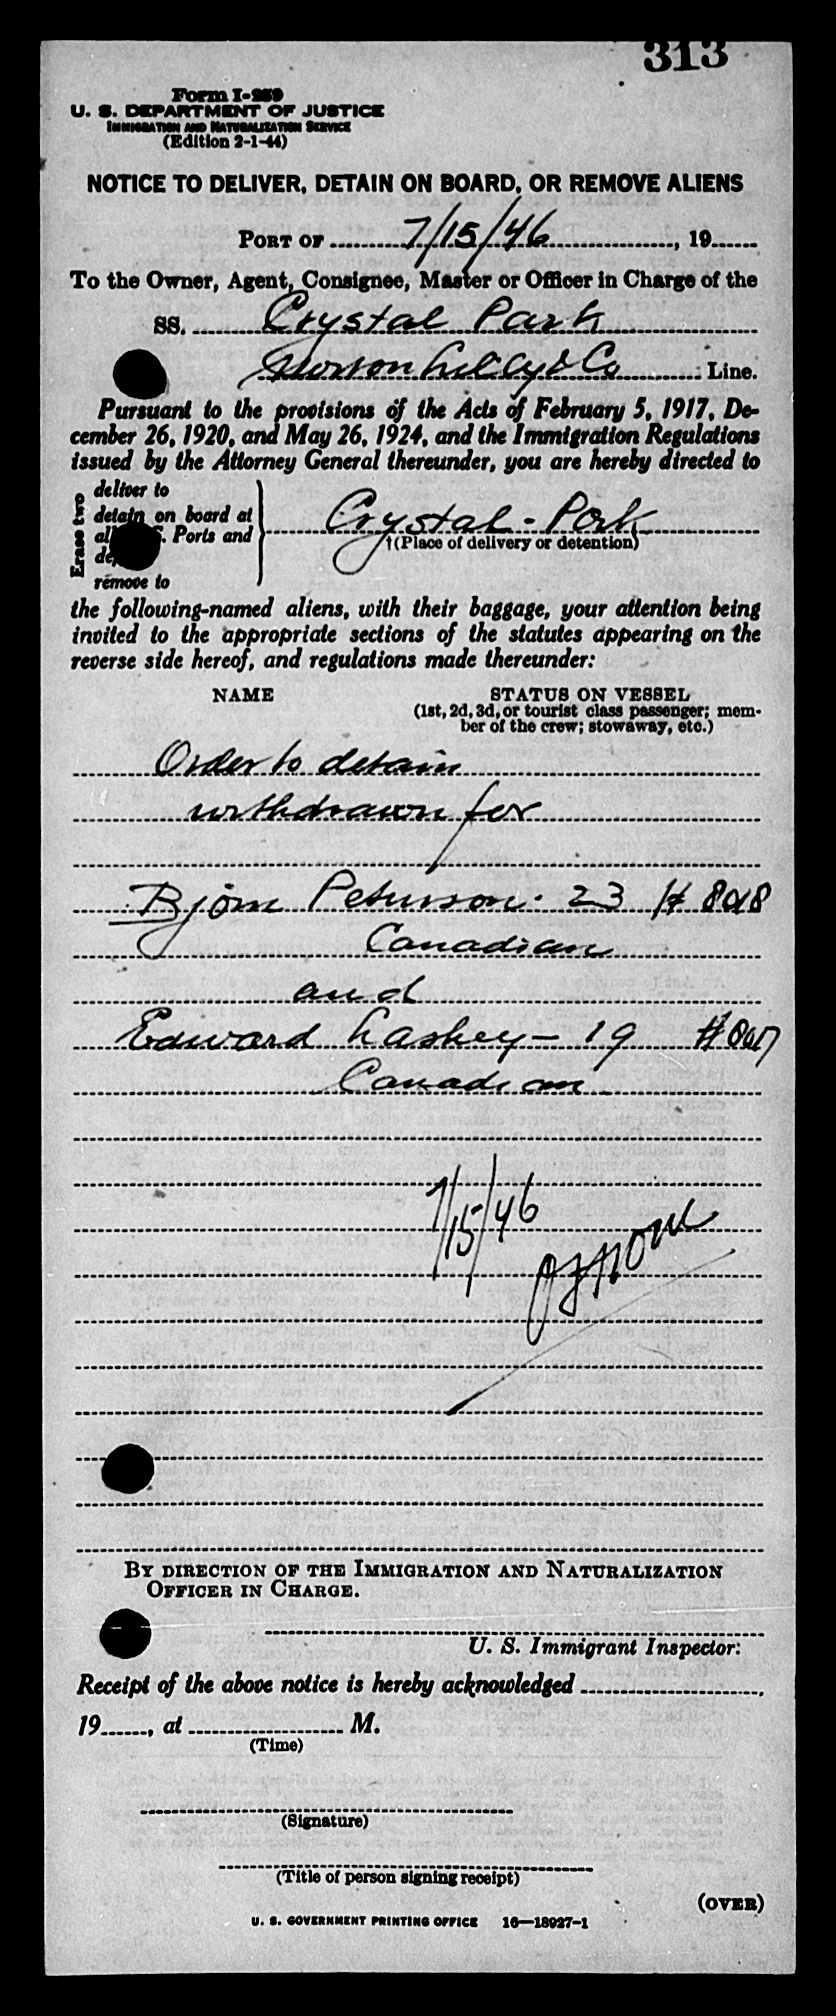 313
Form I-259
U. S. DEPARTMENT OF JUSTICE
IMMIGRATION AND NATURALIZATION SERVICE
(Edition 2-1-44)
NOTICE TO DELIVER, DETAIN ON BOARD, OR REMOVE ALIENS
PORT OF 7/15/46, 19
To the Owner, Agent, Consignee, Master or Officer in Charge of the
SS. Crystal Park
Lilly & Co Line.
Pursuant to the provisions of the Acts of February 5, 1917, De-
cember 26, 1920, and May 26, 1924, and the Immigration Regulations
issued by the Attorney General thereunder, you are hereby directed to
Erase two
deliver to
detain on board at
Ports and
remove to
Crystal - Park
†(Place of delivery or detention)
the following-named aliens, with their baggage, your attention being
invited to the appropriate sections of the statutes appearing on the
reverse side hereof, and regulations made thereunder:
NAME STATUS ON VESSEL
(1st, 2d, 3d, or tourist class passenger; mem-
ber of the crew; stowaway, etc.)
Order to detain
withdrawn for
Bjorn Peterson - 23 #
Canadian
and
Edward Laskey - 19 #
Canadian
7/15/46
BY DIRECTION OF THE IMMIGRATION AND NATURALIZATION
OFFICER IN CHARGE.
U. S. Immigrant Inspector:
Receipt of the above notice is hereby acknowledged
19, at M.
(Time)
(Signature)
(Title of person signing receipt)
(OVER)
U. S. GOVERNMENT PRINTING OFFICE 16—18927-1